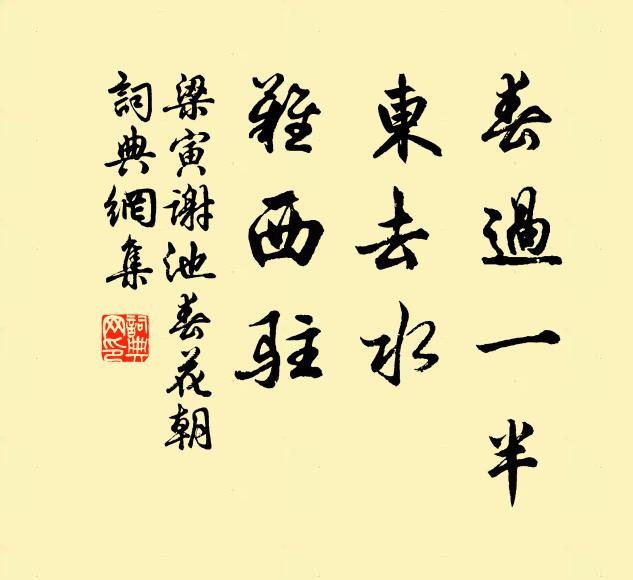 春過一半
東去水
難西駐
梁寅謝池春花朝
詞典網集
詞典
网印